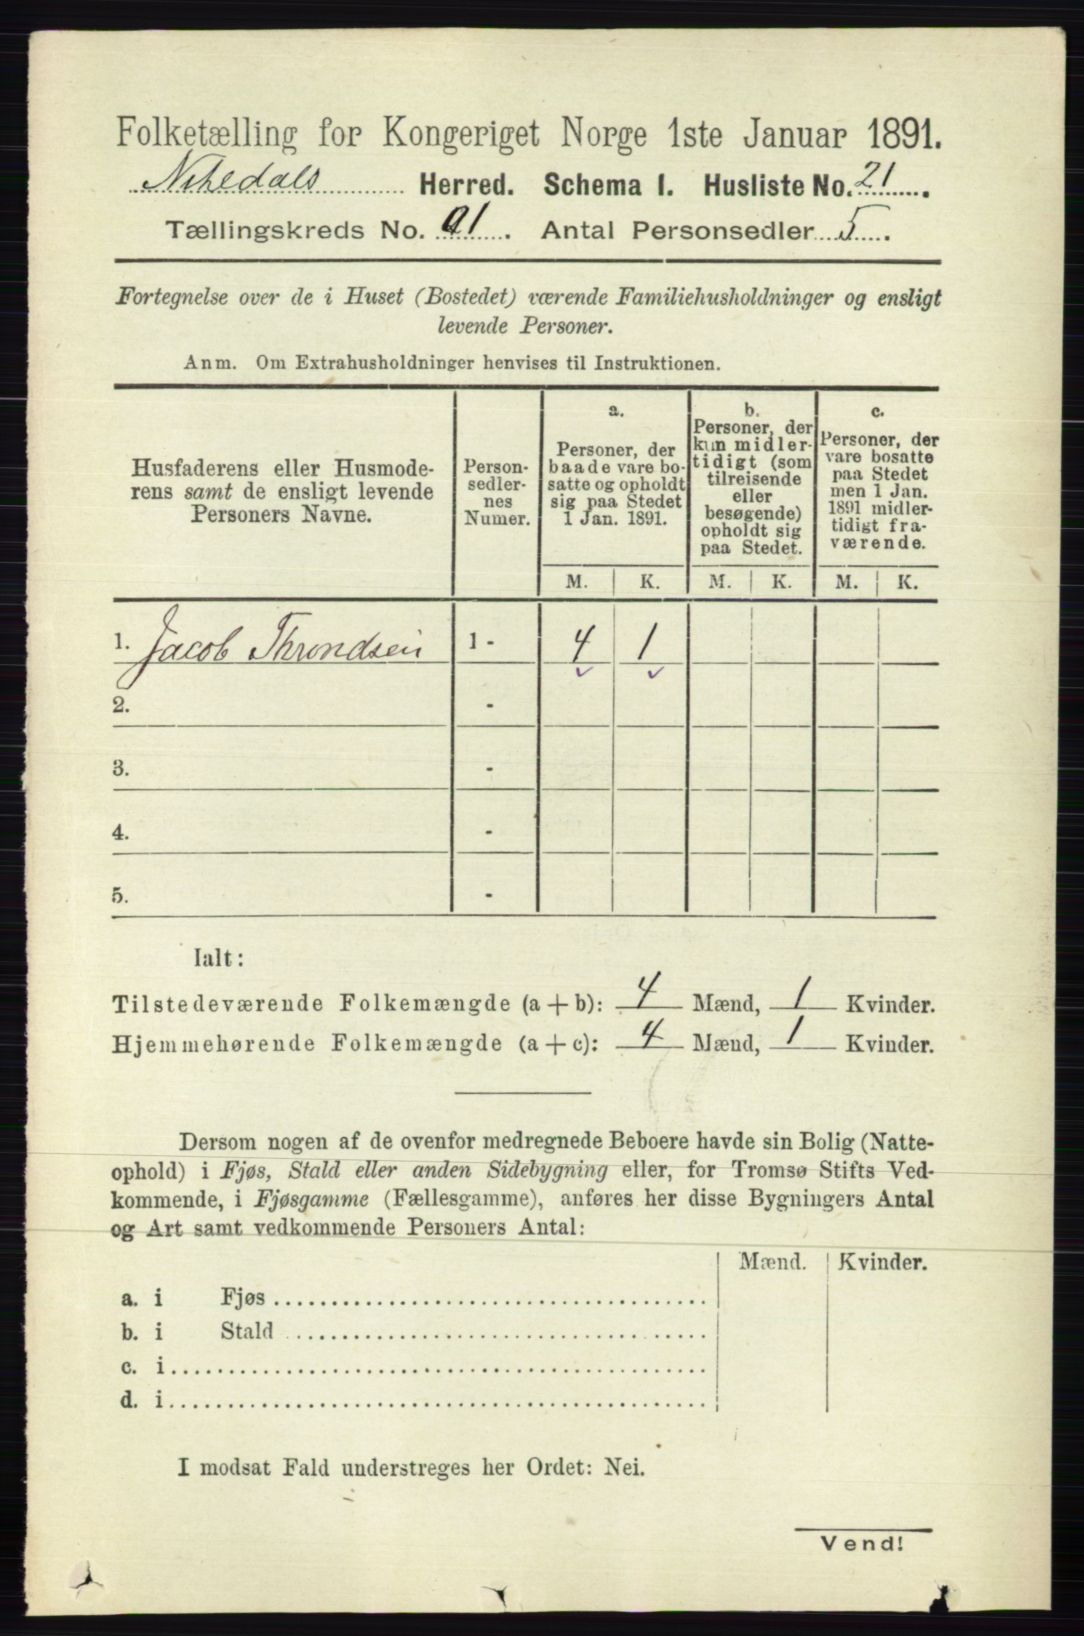 Folketælling for Kongeriget Norge 1ste Januar 1891.
Herred. Schema I. Husliste No. 21.
Tællingskreds No. 01. Antal Personsedler 5.
Fortegnelse over de i Huset (Bostedet) værende Familiehusholdninger og ensligt
levende Personer.
Anm. Om Extrahusholdninger henvises til Instruktionen.
Husfaderens eller Husmode-
rens samt de ensligt levende
Personers Navne.
Person-
sedler-
nes
Numer.
a.
Personer, der
baade vare bo-
satte og opholdt
sig paa Stedet
1 Jan. 1891.
b.
Personer, der
kun midler-
tidigt (som
tilreisende
eller
besøgende)
opholdt sig
paa Stedet.
c.
Personer, der
vare bosatte
paa Stedet
men 1 Jan.
1891 midler-
tidigt fra-
værende.
M. K. M. K. M. K.
1. Jacob Throndsen 1 - 4 1
2. -
3. -
4. -
5. -
Ialt:
Tilstedeværende Folkemængde (a + b): 4 Mænd, 1 Kvinder.
Hjemmehørende Folkemængde (a + c): 4 Mænd, 1 Kvinder.
Dersom nogen af de ovenfor medregnede Beboere havde sin Bolig (Natte-
ophold) i Fjøs, Stald eller anden Sidebygning eller, for Tromsø Stifts Ved-
kommende, i Fjøsgamme (Fællesgamme), anføres her disse Bygningers Antal
og Art samt vedkommende Personers Antal:
Mænd. Kvinder.
a. i Fjøs
b. i Stald
c. i
d. i
I modsat Fald understreges her Ordet: Nei.
Vend!